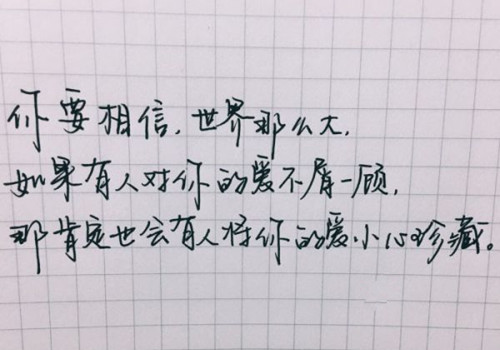 你要相信，世界那么大，
如果有人对你的爱不屑一顾，
那肯定也会有人将你的爱小心珍藏。